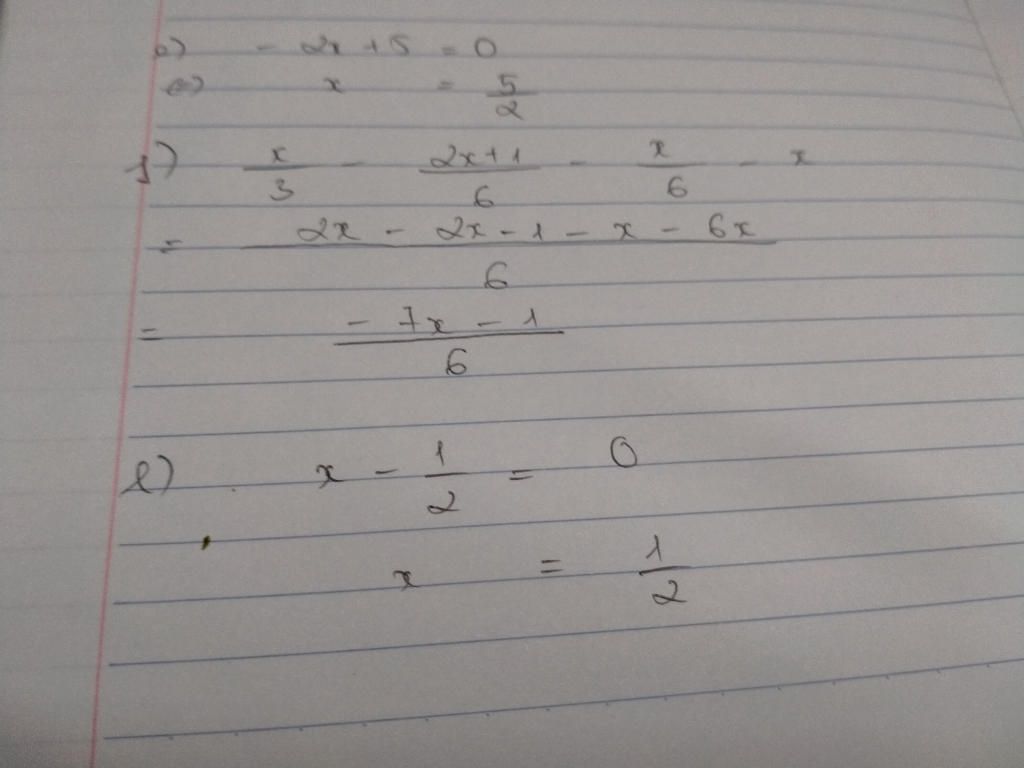 - 2x + 5 = 0
x = 5/2
x/3 - (2x+1)/6 - x/6 - x
= (2x - 2x - 1 - x - 6x)/6
= (- 7x - 1)/6
l) x - 1/2 = 0
x = 1/2